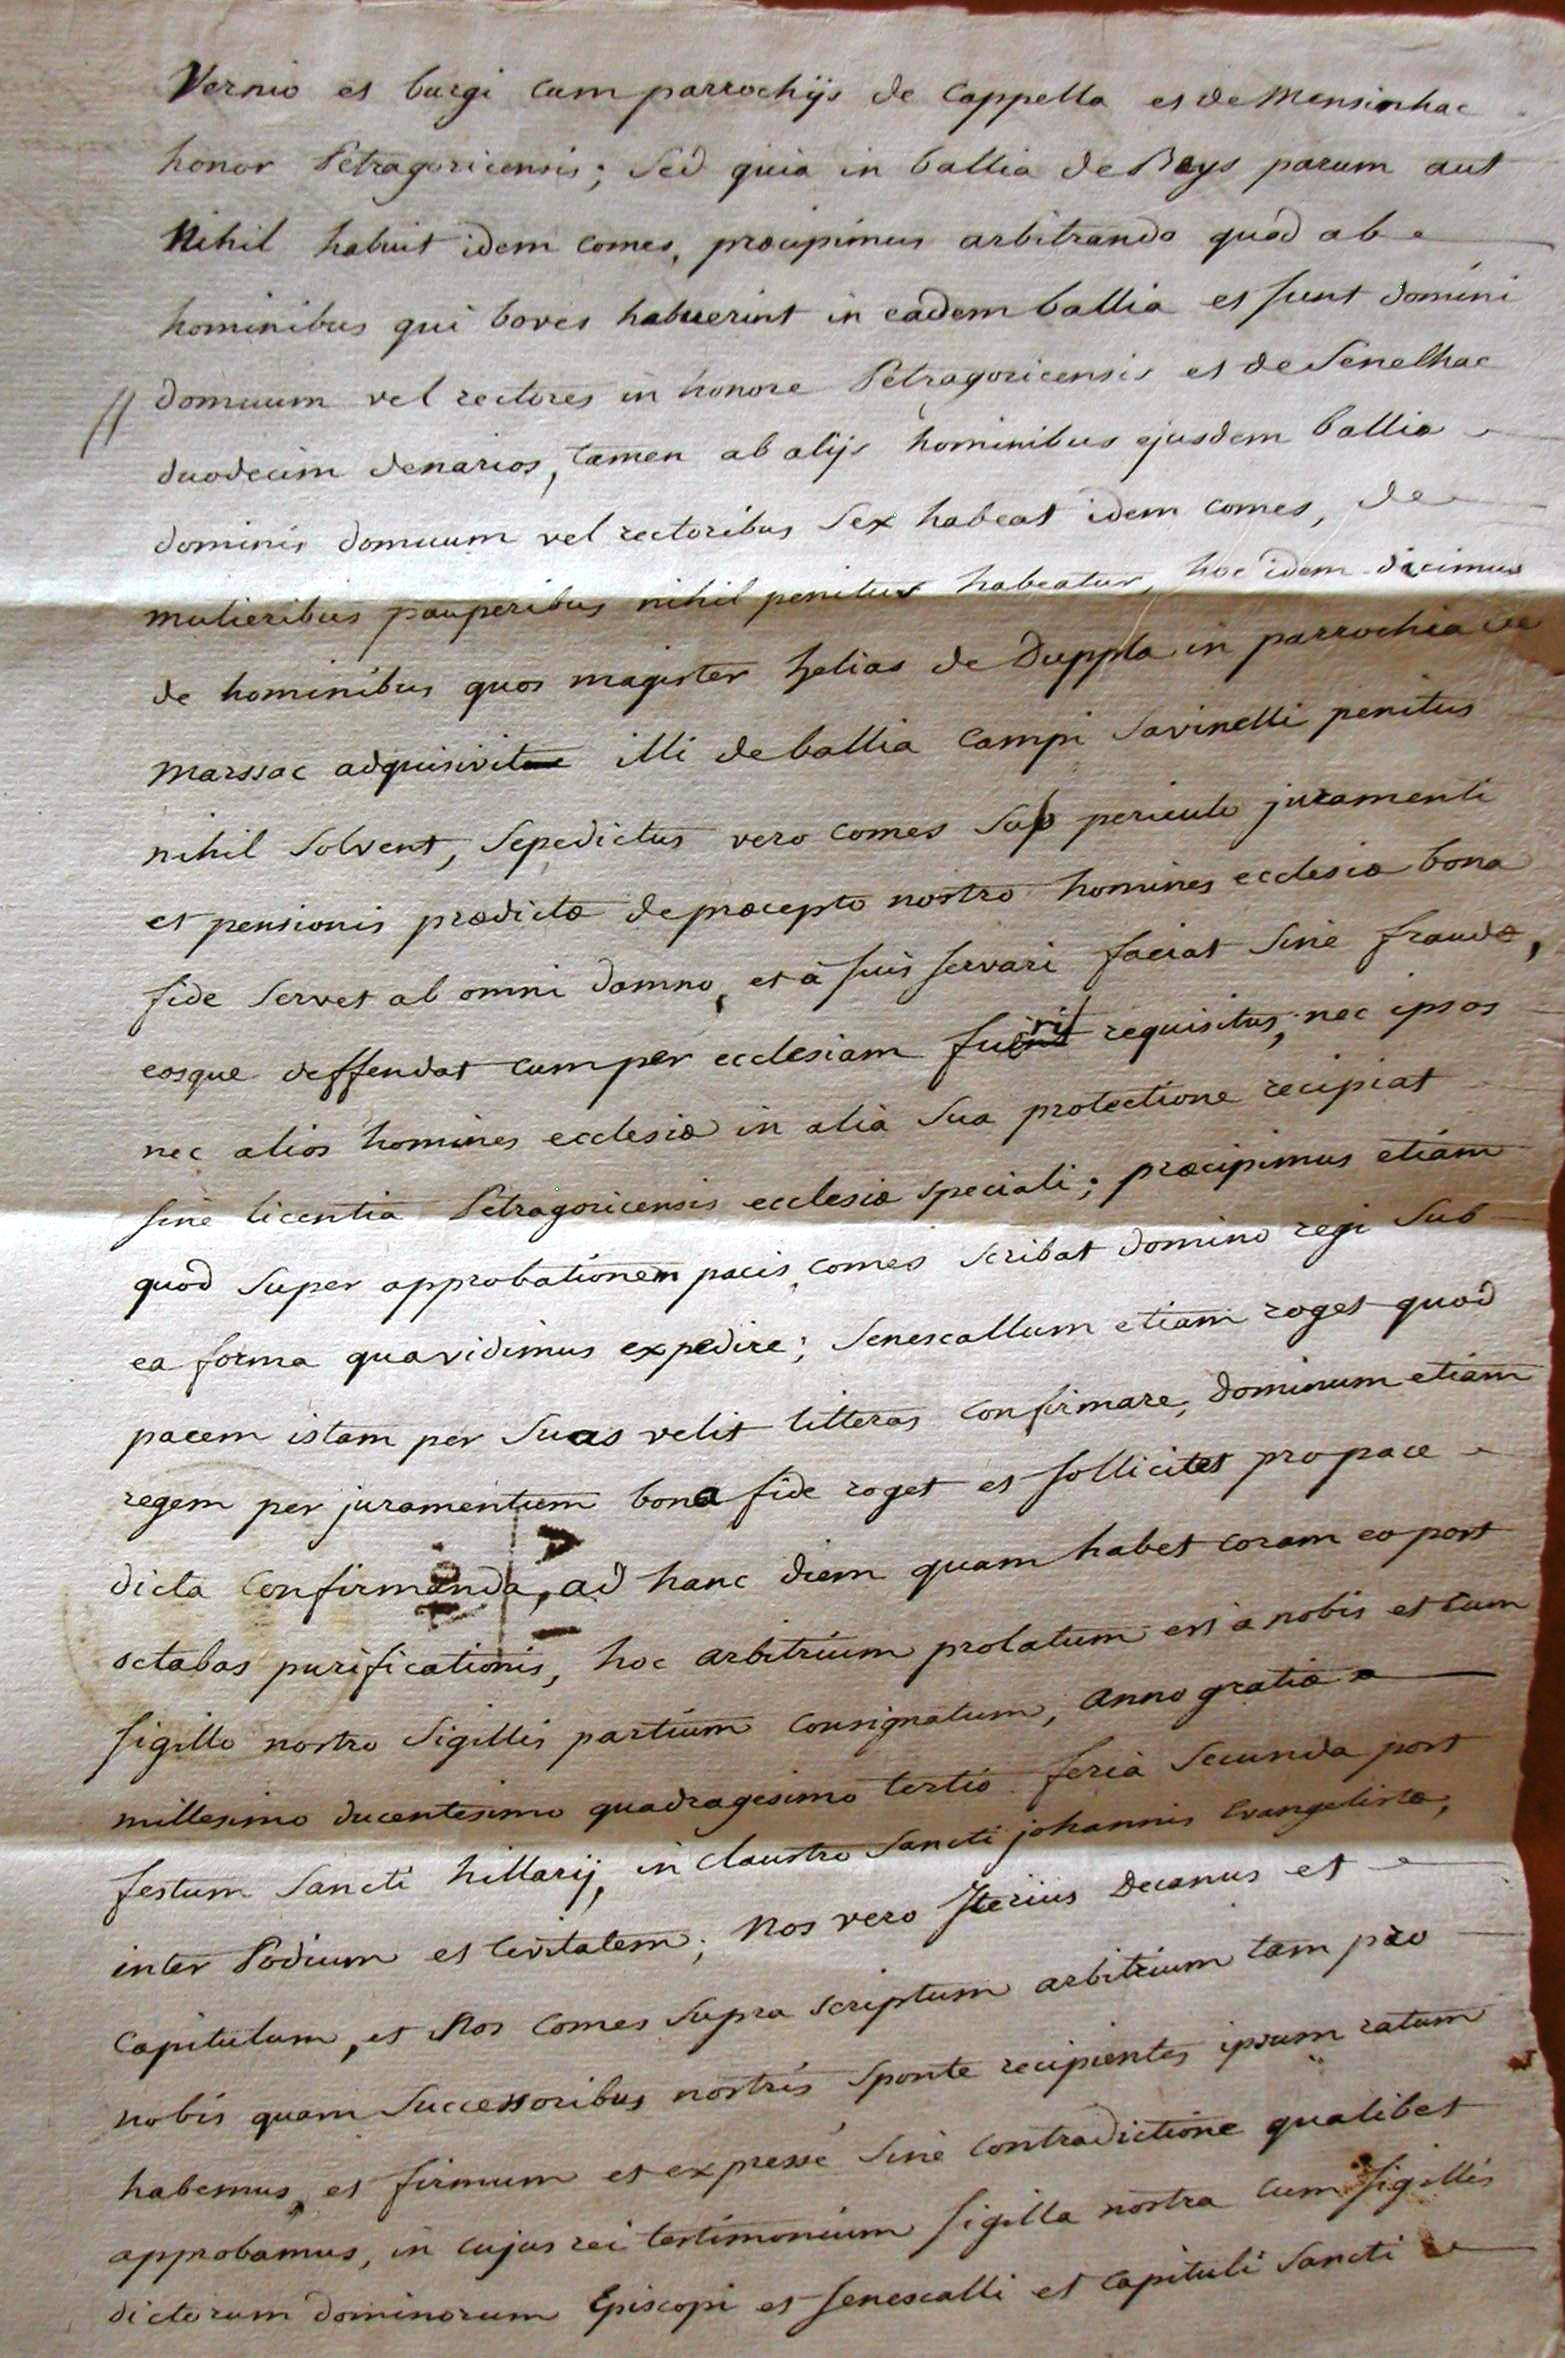 Vernio et burgi cum parrochijs de Cappella et de Mensinhac
honor Petragoricensis; Sed quia in ballia de Rays parum aut
Nihil habuit idem comes, præcipimus arbitrando quod ab
hominibus qui boves habuerint in eadem ballia et sunt domini
// domuum vel rectores in honore Petragoricensis et de Senelhac
duodecim denarios, tamen ab alijs hominibus ejusdem balliæ
dominis domuum vel rectoribus Sex habeat idem comes, de
mulieribus pauperibus nihil penitus habeatur, hoc idem dicimus
de hominibus quos magister helias de Duppla in parrochia de
marssac adquisivit illi de ballia Campi Savinelli penitus
nihil Solvent, Sepedictus vero comes Sub periculo juramenti
et pensionis prædictæ de præcepto nostro homines ecclesiæ bona
fide Servet ab omni damno, et à suis servari faciat Sine fraude,
eosque deffendat cum per ecclesiam fuerit requisitus, nec ipsos
nec alios homines ecclesiæ in aliâ Sua protectione recipiat
sine licentiâ Petragoricensis ecclesiæ speciali; præcipimus etiam
quod Super approbationem pacis, comes scribat domino regi Sub
ea forma qua vidimus expedire; Senescallum etiam roget quod
pacem istam per Suas velit litteras confirmare, dominum etiam
regem per juramentum bona fide roget et sollicitet pro pace
dicta confirmanda, ad hanc diem quam habet coram eo post
octabas purificationis, hoc arbitrium prolatum est a nobis et cum
sigillo nostro Sigillis partium consignatum, anno gratiæ
millesimo ducentesimo quadragesimo tertio feria Secunda post
festum Sancti hillarij, in claustro Sancti johannis Evangelistæ,
inter Podium et Civitatem; Nos vero Iterius Decanus et
Capitulum, et Nos Comes Supra scriptum arbitrium tam pro
nobis quam Successoribus nostris Sponte recipientes ipsum ratum
habemus, et firmum et expressè Sine contradictione qualibet
approbamus, in cujus rei testimonium sigilla nostra cum sigillis
dictorum dominorum Episcopi et senescalli et Capituli Sancti